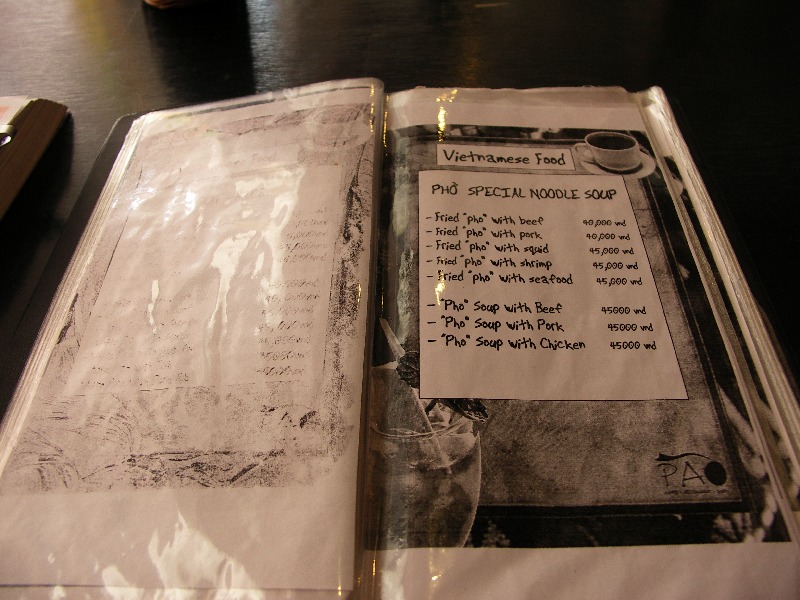 Vietnamese Food
PHỞ SPECIAL NOODLE SOUP
- Fried "pho" with beef 40,000 vnd
- Fried "pho" with pork 40,000 vnd
- Fried "pho" with squid 45,000 vnd
- Fried "pho" with shrimp 45,000 vnd
- Fried "pho" with seafood 45,000 vnd
- "Pho" Soup with Beef 45000 vnd
- "Pho" Soup with Pork 45000 vnd
- "Pho" Soup with Chicken 45000 vnd
PAO